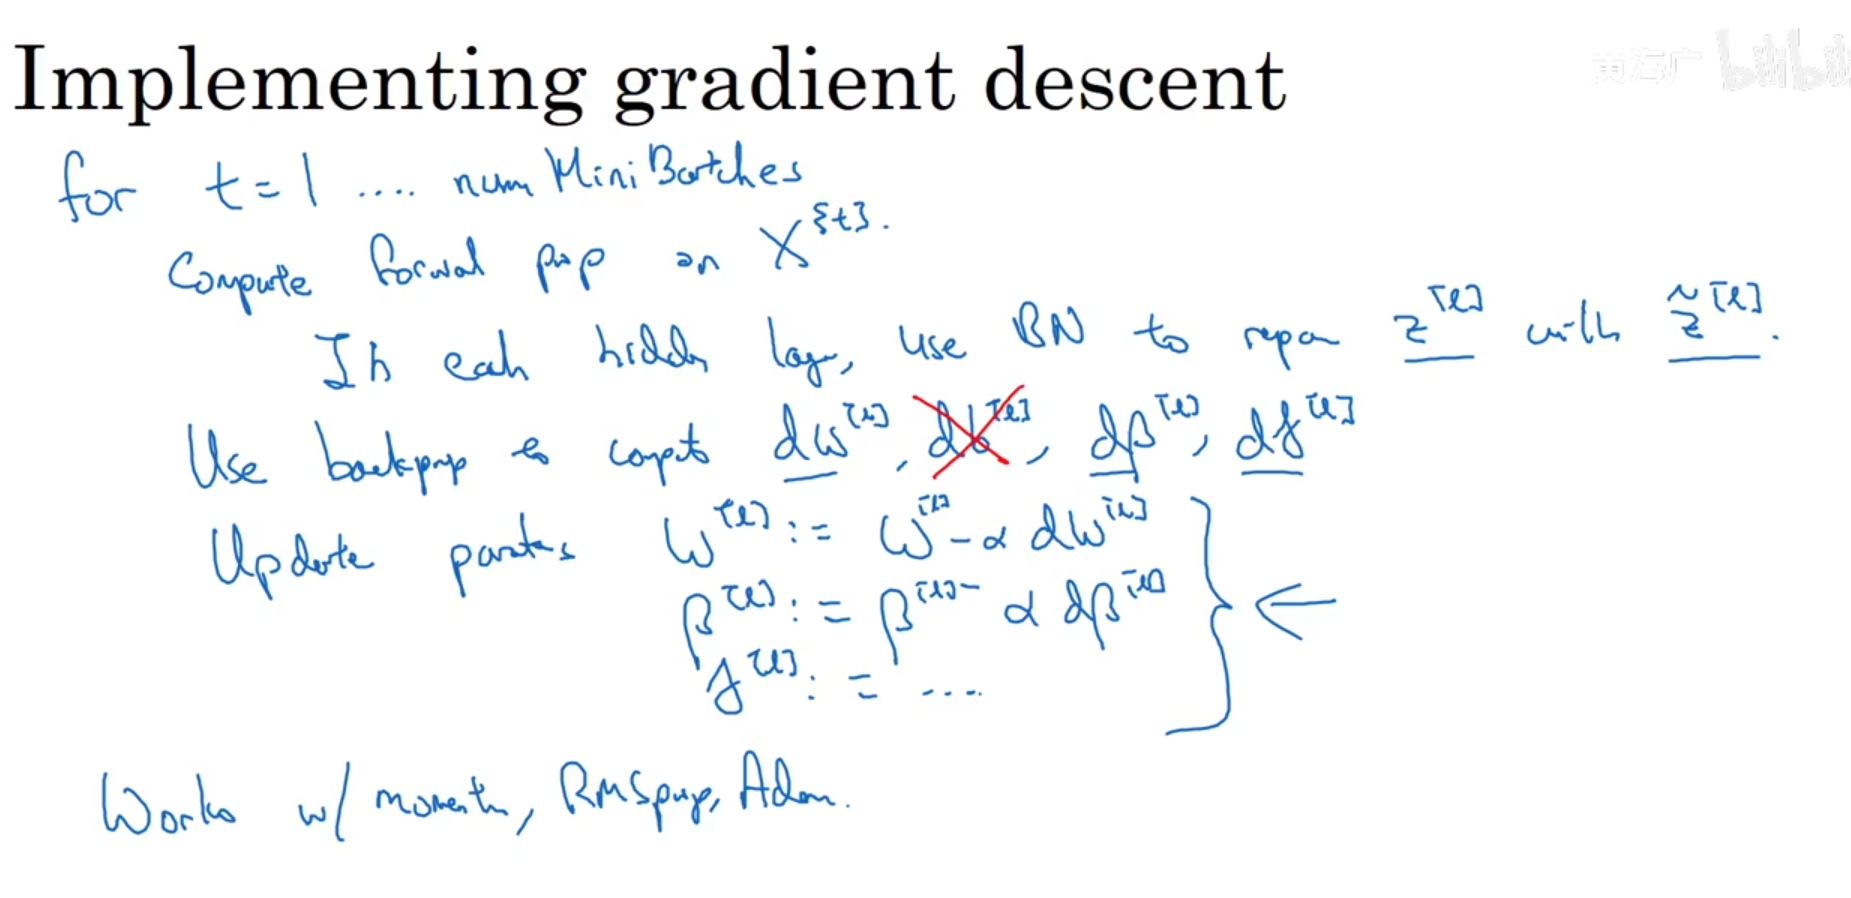 Implementing gradient descent
黄海广 bilibili
for t = 1 .... num Mini Batches
Compute forwal prop on X^{t}.
In each hidden layer, use BN to repar z^[l] with z̃^[l].
Use backprop to compt dw^[l], db^[l], dβ^[l], dγ^[l]
Update paraters W^[l] := W^[l] - α dW^[l]
β^[l] := β^[l] - α dβ^[l]
γ^[l] := ....
←
Works w/ momentm, RMSprop, Adam.